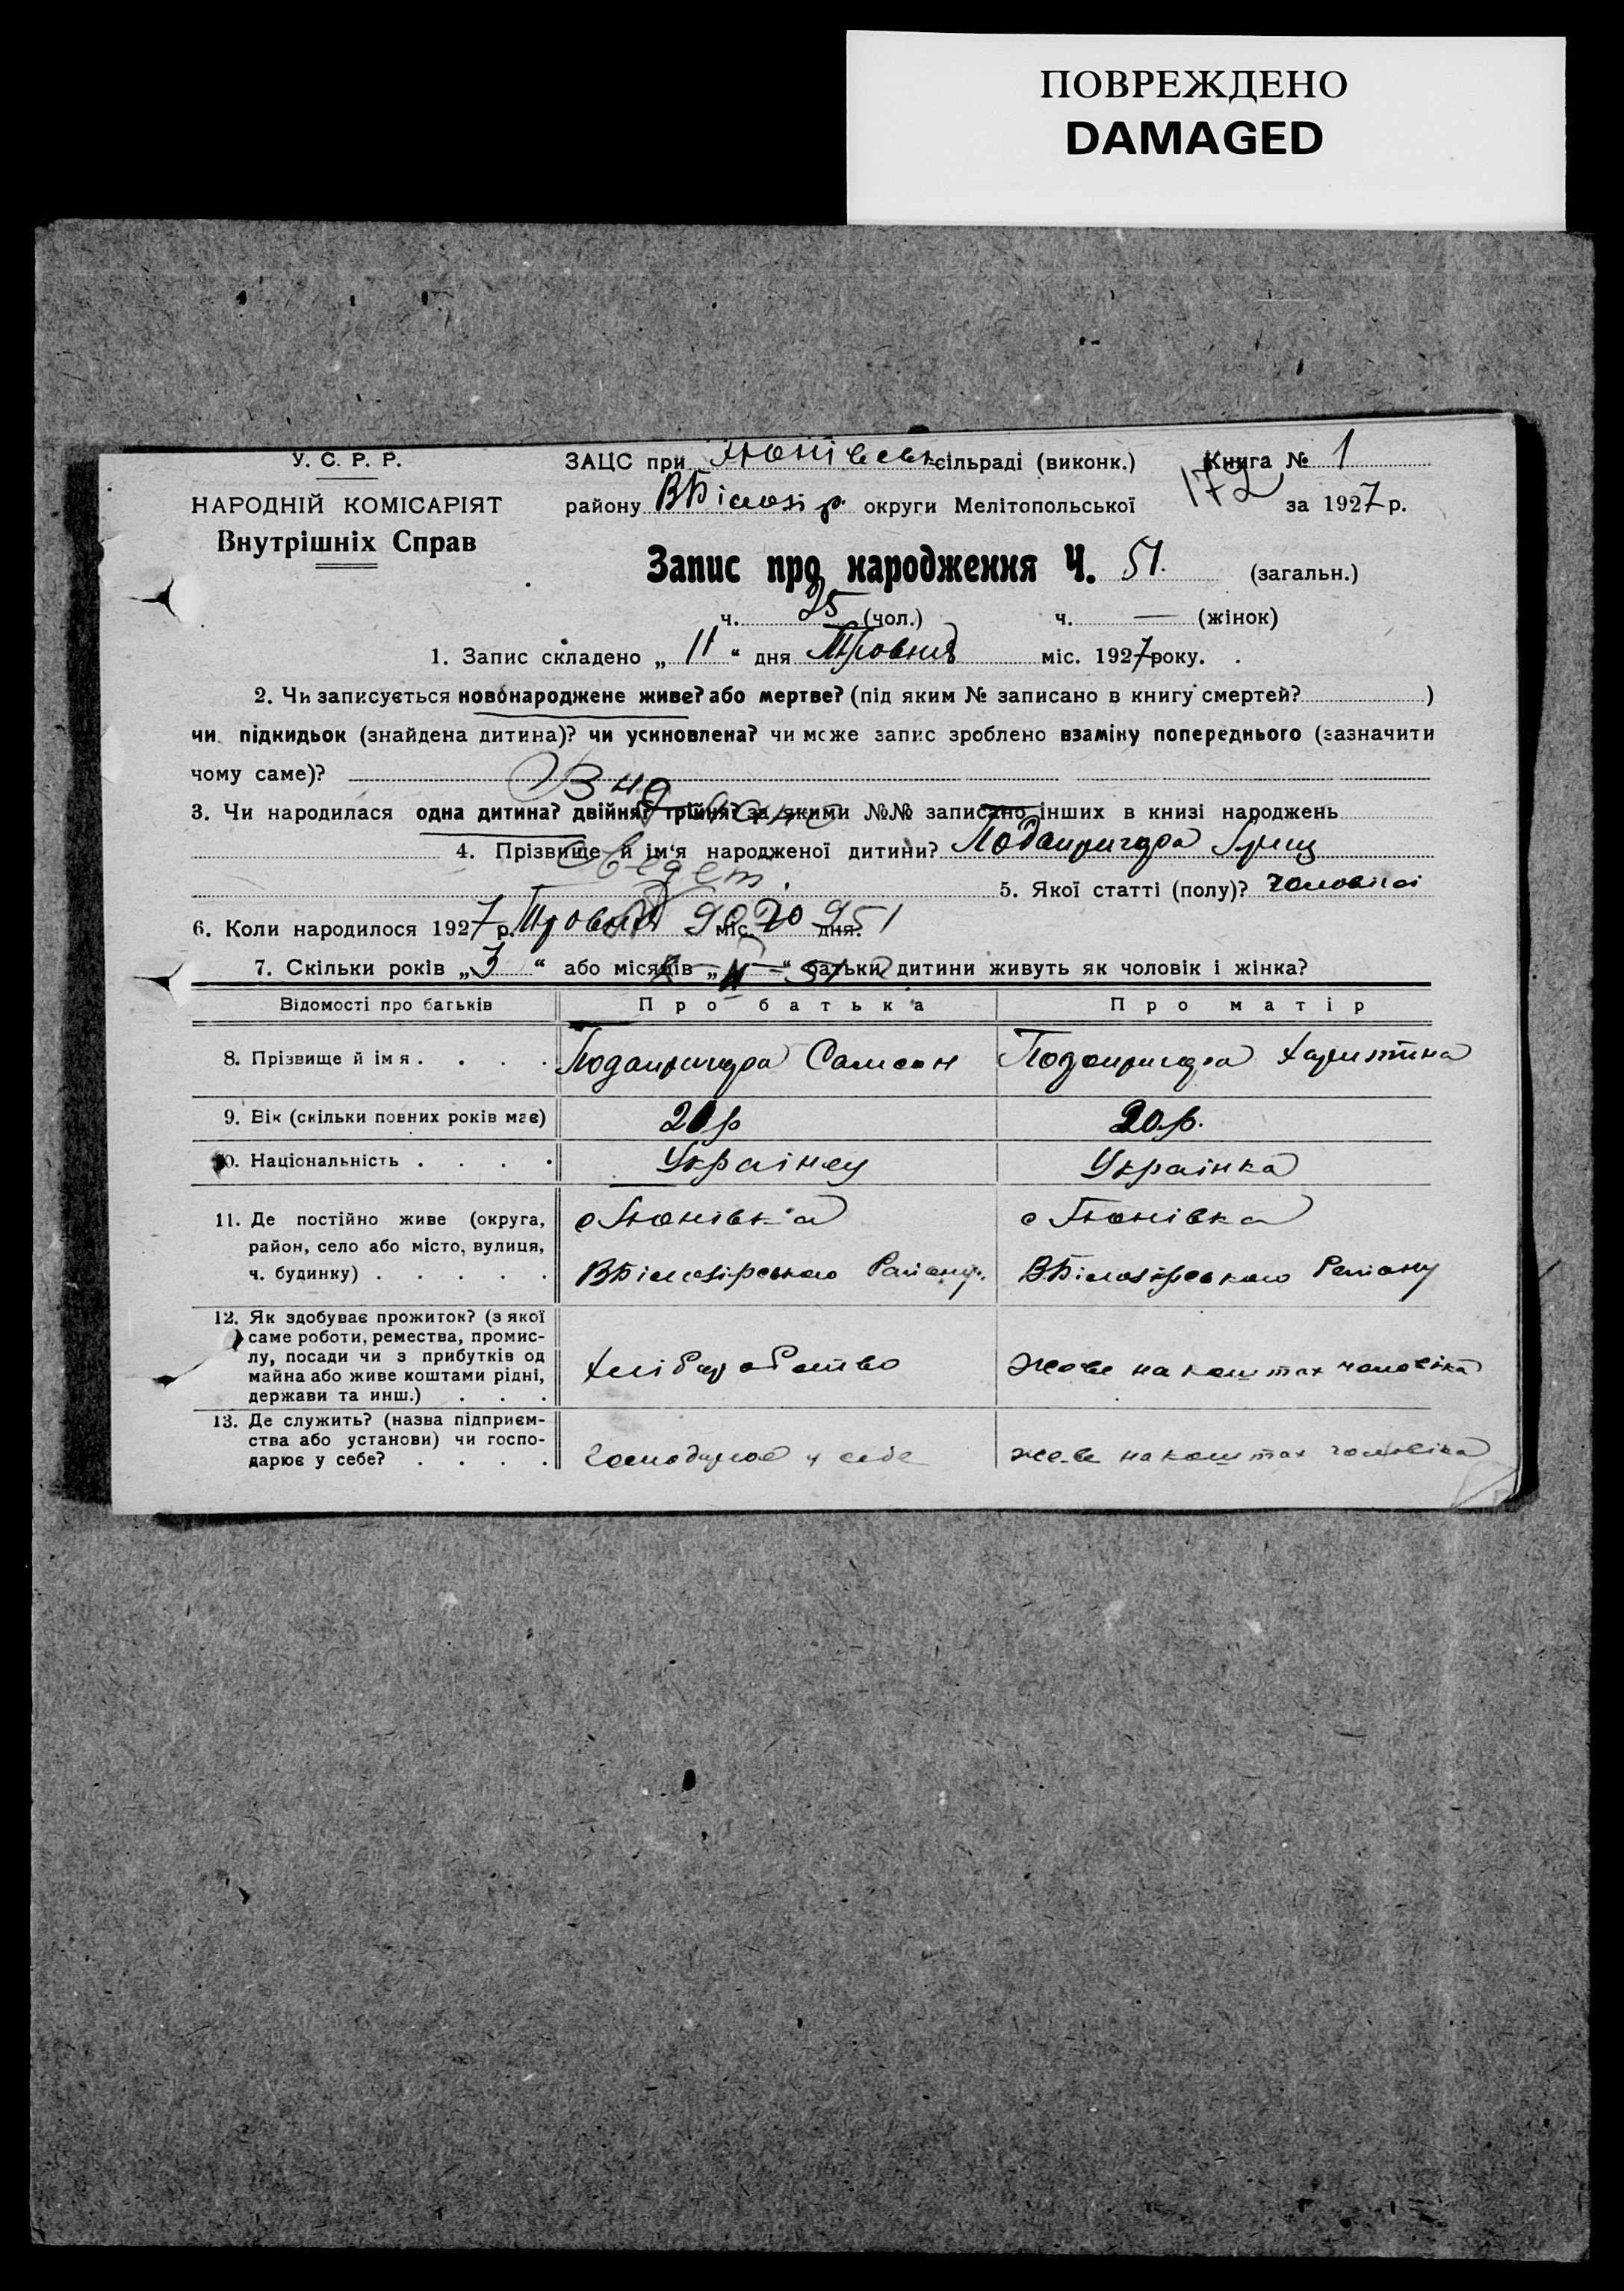 ПОВРЕЖДЕНО
DAMAGED
У. С. Р. Р.
НАРОДНІЙ КОМІСАРІЯТ
Внутрішніх Справ
ЗАЦС при сільраді (виконк.) Книга № 1
району ВБілозір. округи Мелітопольської 172 за 1927 р.
Запис про народження Ч. 51. (загальн.)
ч. 25 (чол.) ч. — (жінок)
1. Запис складено „ 11 “ дня Травня міс. 1927 року.
2. Чи записується новонароджене живе? або мертве? (під яким № записано в книгу смертей? )
чи підкидьок (знайдена дитина)? чи усиновлена? чи може запис зроблено взаміну попереднього (зазначити
чому саме)?
3. Чи народилася одна дитина? двійня? трійня? за якими №№ записано інших в книзі народжень
4. Прізвище й ім'я народженої дитини? Подопригора Гриц
5. Якої статті (полу)? чоловічої
6. Коли народилося 1927 р. Травня міс. дня.
7. Скільки років „ 3 “ або місяців „ “ батьки дитини живуть як чоловік і жінка?
Відомості про батьків Про батька Про матір
8. Прізвище й імя . . . . Подопригора Самсон Подопригора Харитина
9. Вік (скільки повних років має) р 20 р.
10. Національність . . . . Украінец Украінка
11. Де постійно живе (округа,
район, село або місто, вулиця,
ч. будинку) . . . . .
ВБілозірського Району. ВБілозірського Району
12. Як здобуває прожиток? (з якої
саме роботи, ремества, промис-
лу, посади чи з прибутків од
майна або живе коштами рідні,
держави та инш.) . . .
Хліборобство Живе на коштах чоловіка
13. Де служить? (назва підприєм-
ства або установи) чи госпо-
дарює у себе? . . . .
Господарює у себе живе на коштах чоловіка